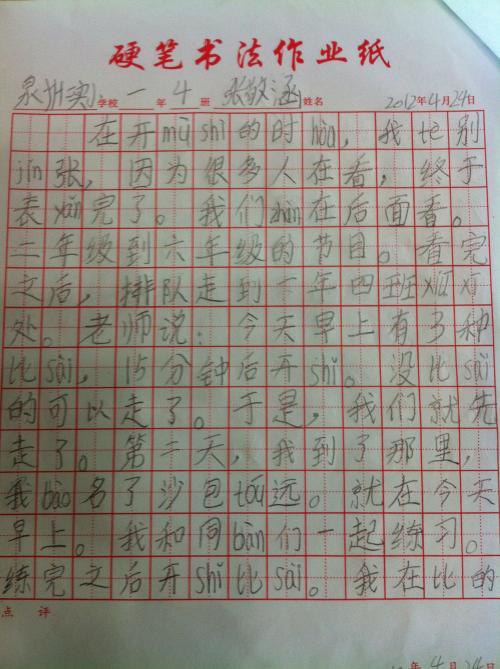 硬笔书法作业纸
泉州实小学校一年4班张敬涵姓名 2012年4月24日
在开mù shì的时hòu,我tè别
jǐn张,因为很多人在看,终于
表yǎn完了。我们zhàn在后面看。
二年级到六年级的节目。看完
之后,排队走到一年四班xiū xi
处。老师说:今天早上有多种
比sài,15分钟后开shǐ。没比sài
的可以走了。于是,我们就先
走了。第二天,我到了那里,
我bào名了沙包tóu远。就在今天
早上。我和同bàn们一起练习。
练完之后开shǐ比sài。我在比的
点评
年4月24日